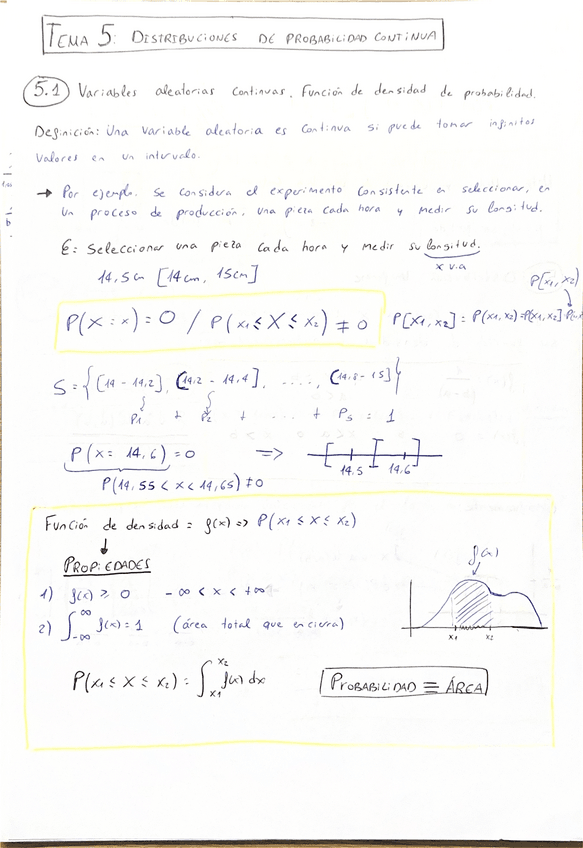 TEMA 5: DISTRIBUCIONES DE PROBABILIDAD CONTINUA
5.1 Variables aleatorias continuas. Función de densidad de probabilidad.
Definición: Una variable aleatoria es continua si puede tomar infinitos
valores en un intervalo.
→ Por ejemplo. Se considera el experimento consistente en seleccionar, en
un proceso de producción, una pieza cada hora y medir su longitud.
E: Seleccionar una pieza cada hora y medir su longitud.
x v.a
14,5cm [14cm, 15cm]
P[x1, x2)
P(X = x) = 0 / P(x1 ≤ X ≤ x2) ≠ 0
P[x1, x2] = P(x1, x2) = P[x1, x2]
S = { [14 - 14,2], (14,2 - 14,4], ....., (14,8 - 15] }
P1 + P2 + ... + P5 = 1
P(x = 14,6) = 0 => 14,5 14,6
P(14,55 < x < 14,65) ≠ 0
Función de densidad = f(x) => P(x1 ≤ x ≤ x2)
PROPIEDADES
f(x)
1) f(x) ≥ 0 -∞ < x < +∞
2) ∫-∞ ∞ f(x) = 1 (área total que encierra)
x1 x2
P(x1 ≤ X ≤ x2) = ∫x1 x2 f(x) dx
PROBABILIDAD ≡ ÁREA